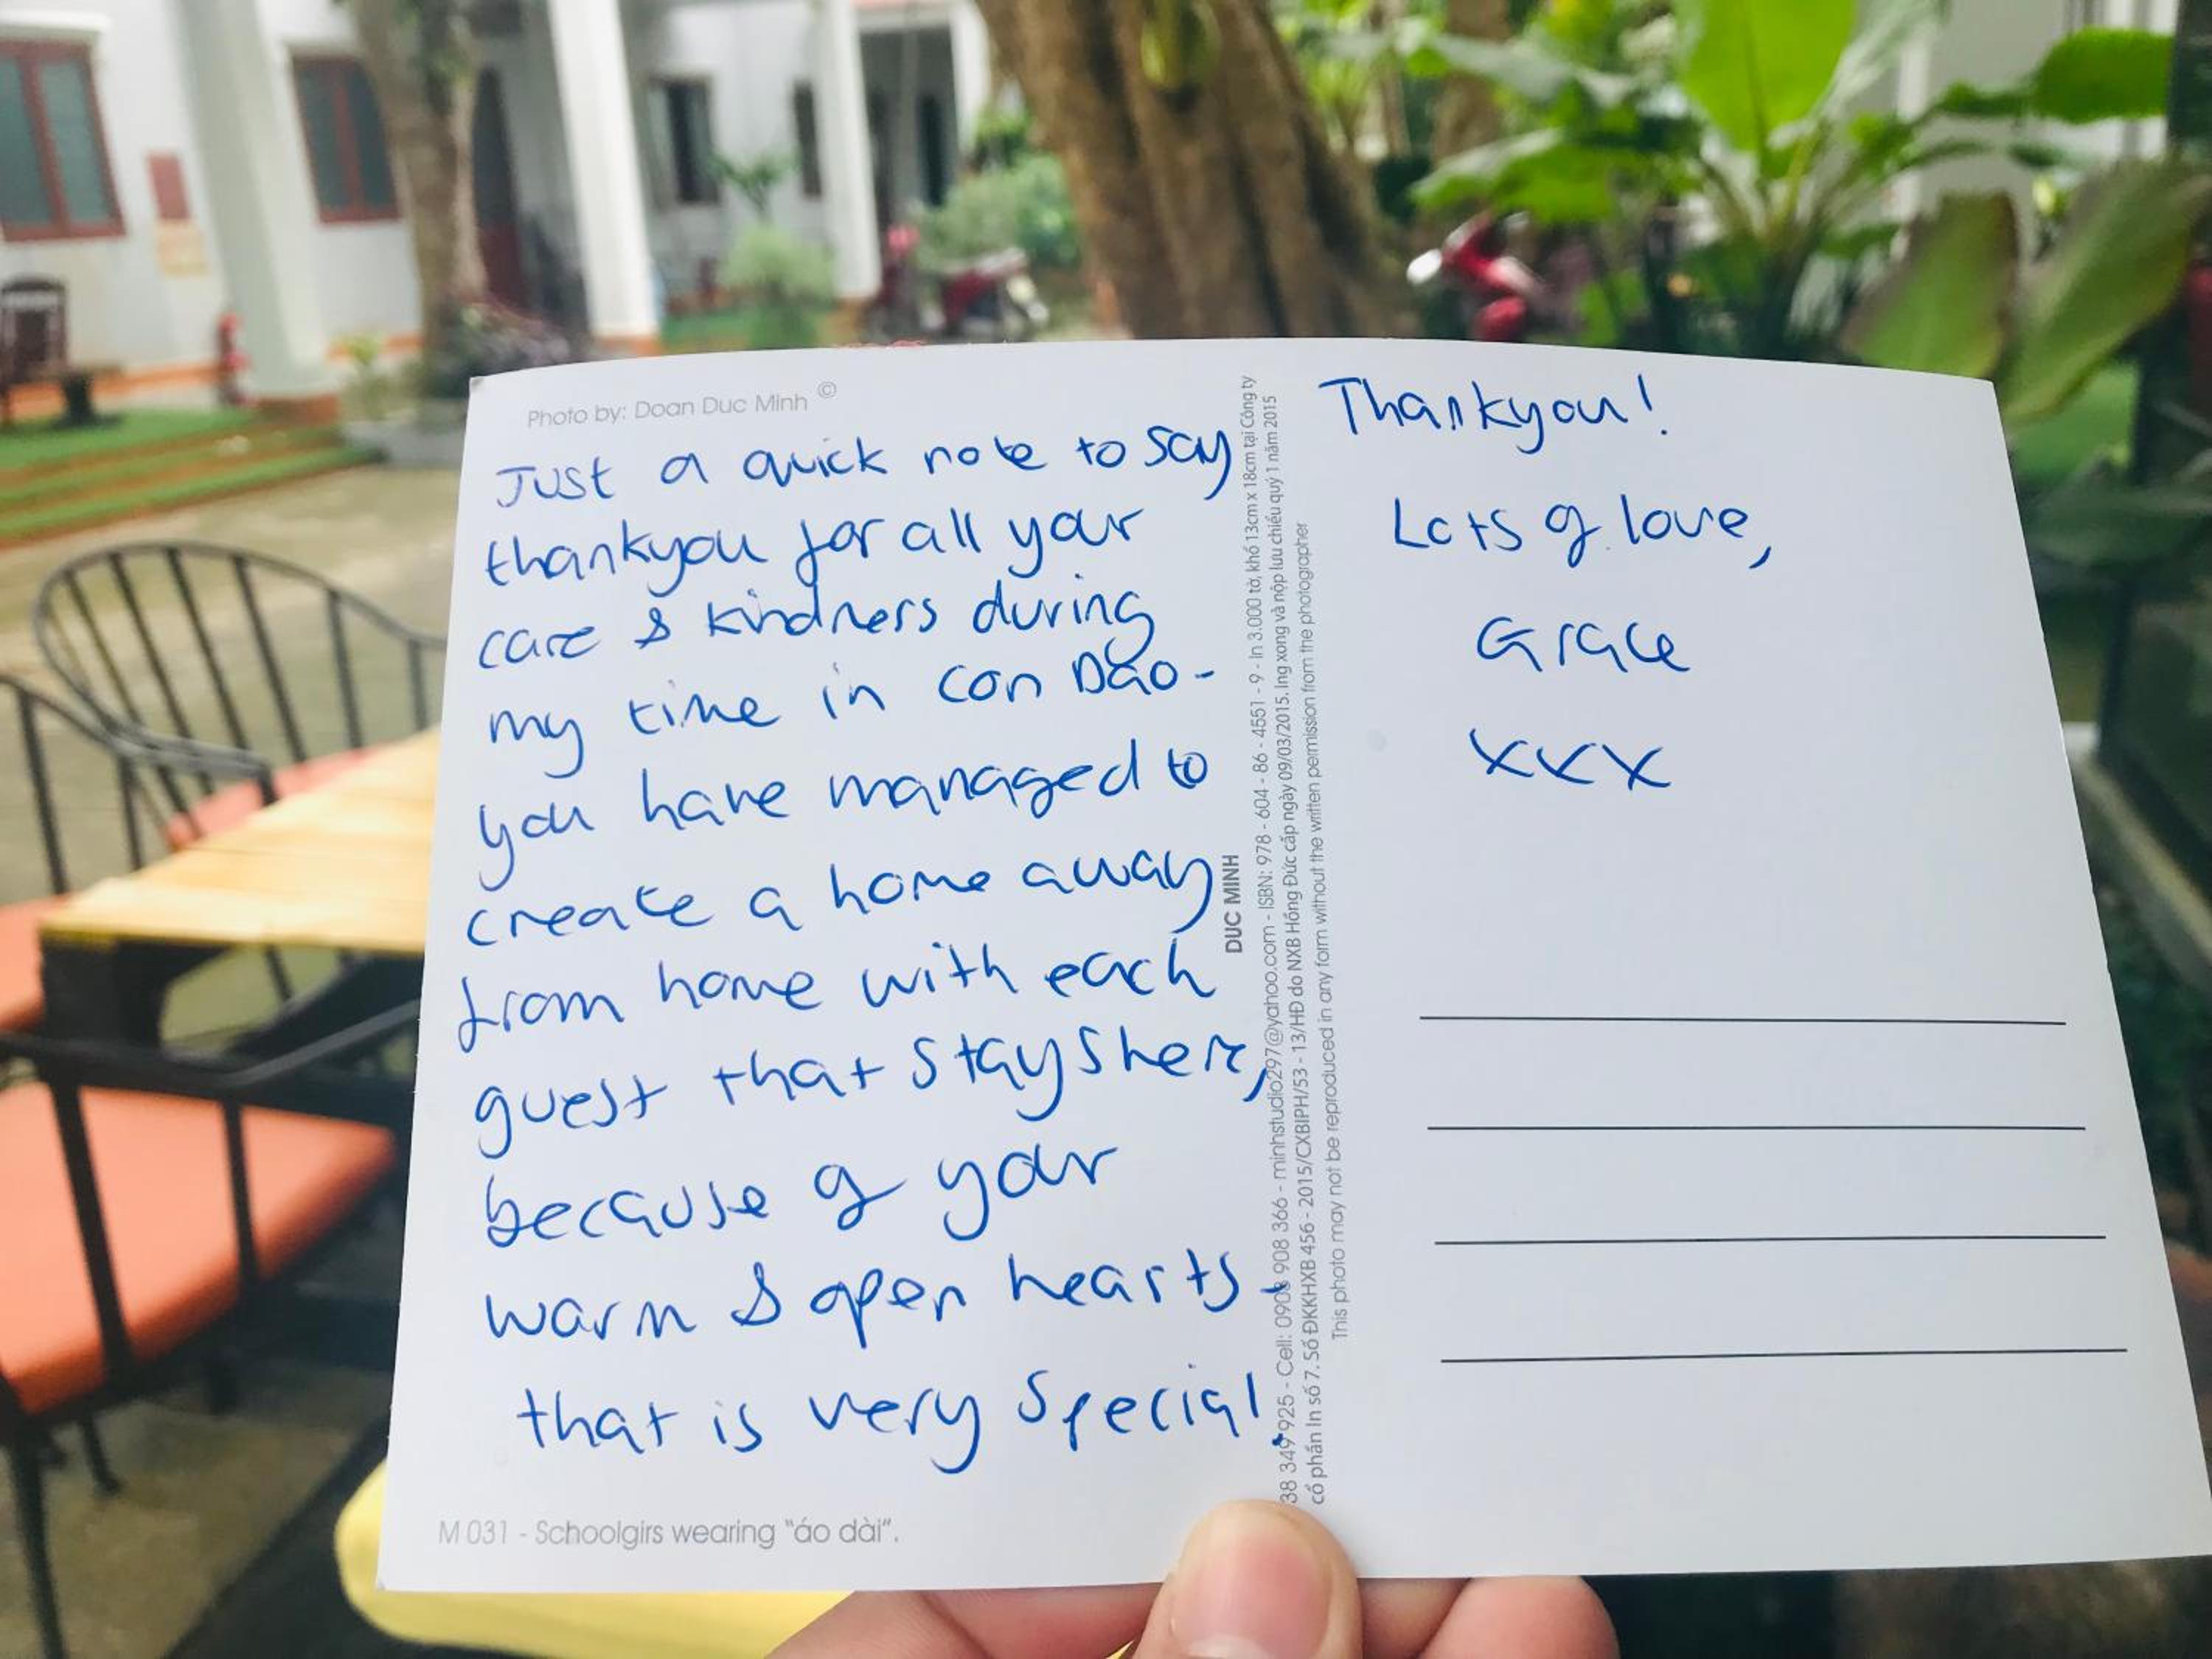 Photo by: Doan Duc Minh ©
Just a quick note to say
thankyou for all your
care & kindness during
my time in Con Dao -
you have managed to
create a home away
from home with each
guest that stays here,
because of your
warm & open hearts -
that is very special.
M 031 - Schoolgirs wearing "áo dài".
DUC MINH
38 349 925 - Cell: 0903 908 366 - minhstudio297@yahoo.com - ISBN: 978 - 604 - 86 - 4551 - 9 - In 3.000 tờ, khổ 13cm x 18cm tại Công ty
cổ phần In số 7. Số ĐKKHXB 456 - 2015/CXBIPH/53 - 13/HĐ do NXB Hồng Đức cấp ngày 09/03/2015. Ing xong và nộp lưu chiểu quý 1 năm 2015
This photo may not be reproduced in any form without the written permission from the photographer
Thankyou!
Lots of love,
Grace
xxx